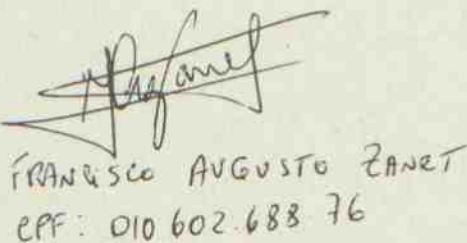 FRANCISCO AUGUSTO ZANET
CPF: 010 602.688.76